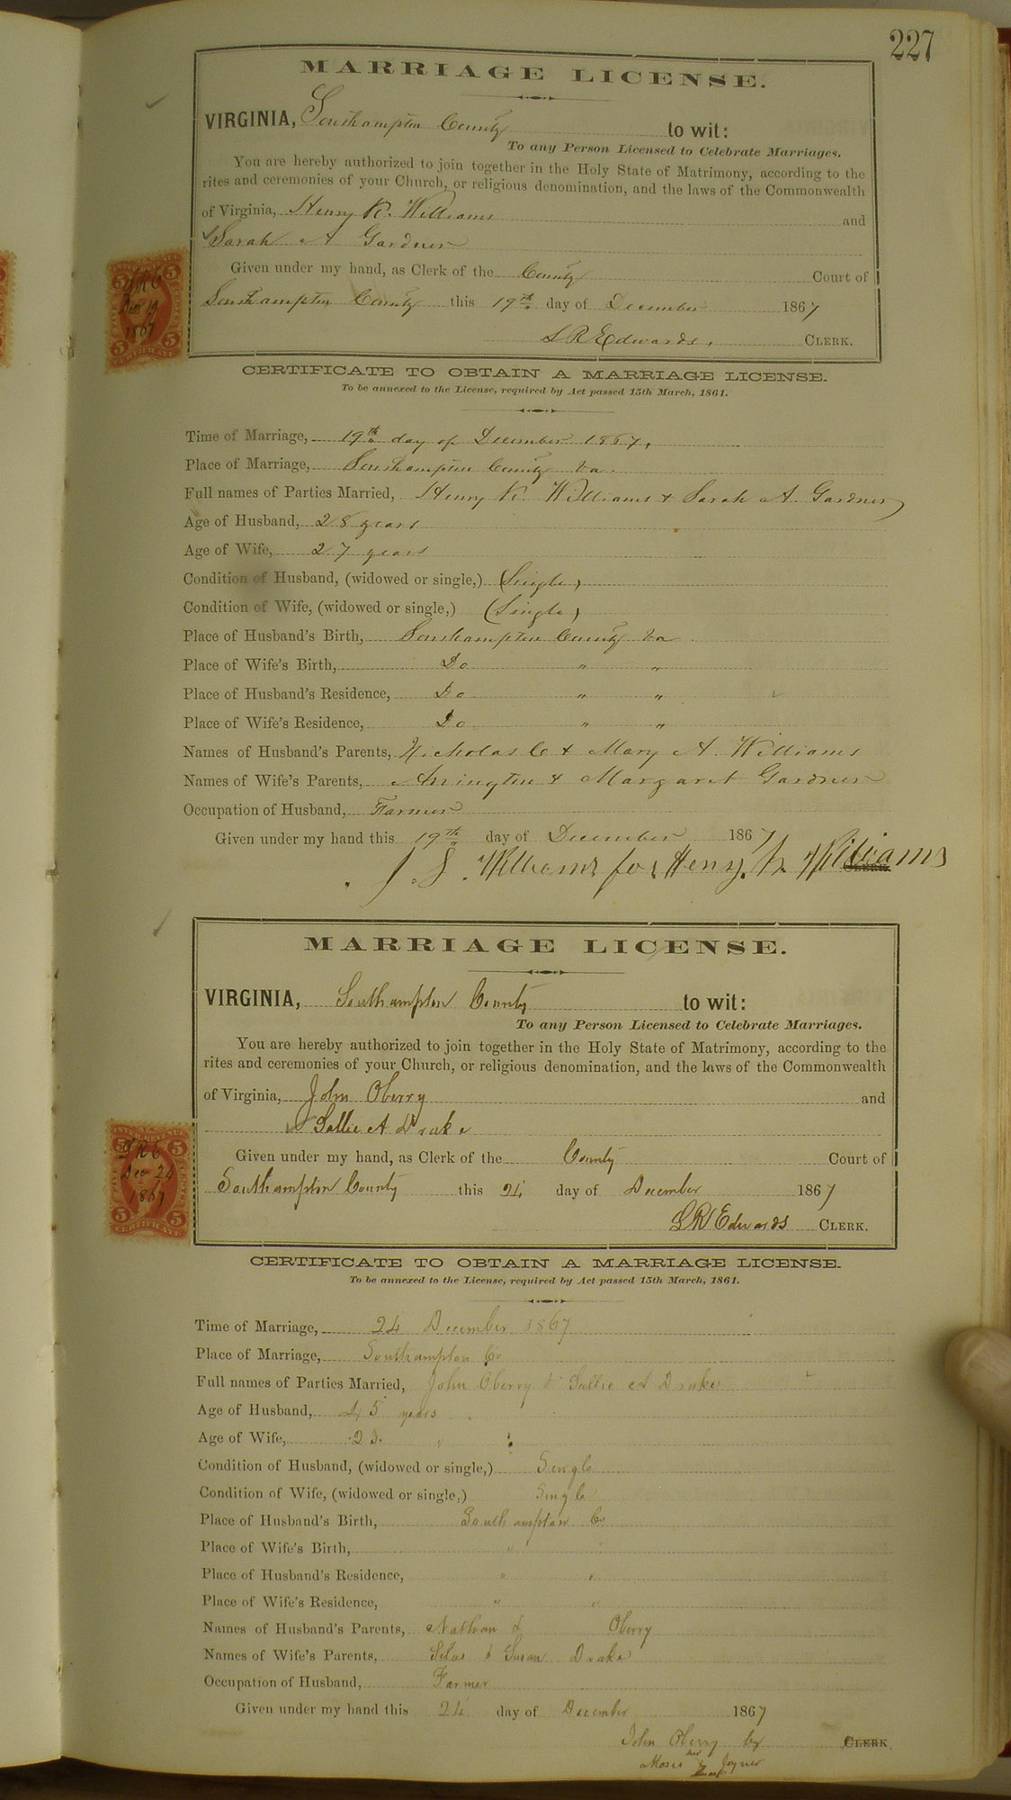 227
MARRIAGE LICENSE.
VIRGINIA, Southampton County to wit:
To any Person Licensed to Celebrate Marriages.
You are hereby authorized to join together in the Holy State of Matrimony, according to the
rites and ceremonies of your Church, or religious denomination, and the laws of the Commonwealth
of Virginia, Henry K. Williams and
Sarah A Gardner
Given under my hand, as Clerk of the County Court of
Southampton County this 19th day of December 1867
L R Edwards, CLERK.
5 5
LRE
Dec 19
1867
5 5
CERTIFICATE
CERTIFICATE TO OBTAIN A MARRIAGE LICENSE.
To be annexed to the License, required by Act passed 15th March, 1861.
Time of Marriage, 19th day of December 1867,
Place of Marriage, Southampton County Va.
Full names of Parties Married, Henry K. Williams & Sarah A. Gardner
Age of Husband, 28 years
Age of Wife, 27 years
Condition of Husband, (widowed or single,) (Single)
Condition of Wife, (widowed or single,) (Single)
Place of Husband's Birth, Southampton County Va
Place of Wife's Birth, Do " "
Place of Husband's Residence, Do " "
Place of Wife's Residence, Do " "
Names of Husband's Parents, Nicholas C & Mary A. Williams
Names of Wife's Parents, Arrington & Margaret Gardner
Occupation of Husband, Farmer
Given under my hand this 19th day of December 1867
J. S. Williams for Henry K Williams CLERK.
MARRIAGE LICENSE.
VIRGINIA, Southampton County to wit:
To any Person Licensed to Celebrate Marriages.
You are hereby authorized to join together in the Holy State of Matrimony, according to the
rites and ceremonies of your Church, or religious denomination, and the laws of the Commonwealth
of Virginia, John Oberry and
Sallie A Drake
Given under my hand, as Clerk of the County Court of
Southampton County this 24 day of December 1867
L R Edwards CLERK.
5 5
LRE
Dec 24
1867
5 5
CERTIFICATE
CERTIFICATE TO OBTAIN A MARRIAGE LICENSE.
To be annexed to the License, required by Act passed 15th March, 1861.
Time of Marriage, 24 December 1867
Place of Marriage, Southampton Co
Full names of Parties Married, John Oberry & Sallie A Drake
Age of Husband, 45 years
Age of Wife, " "
Condition of Husband, (widowed or single,) Single
Condition of Wife, (widowed or single,) Single
Place of Husband's Birth, Southampton Co
Place of Wife's Birth, "
Place of Husband's Residence, " "
Place of Wife's Residence, " "
Names of Husband's Parents, Nathan & Oberry
Names of Wife's Parents, Silas & Susan Drake
Occupation of Husband, Farmer
Given under my hand this 24 day of December 1867
John Oberry by CLERK.
Moses Joyner